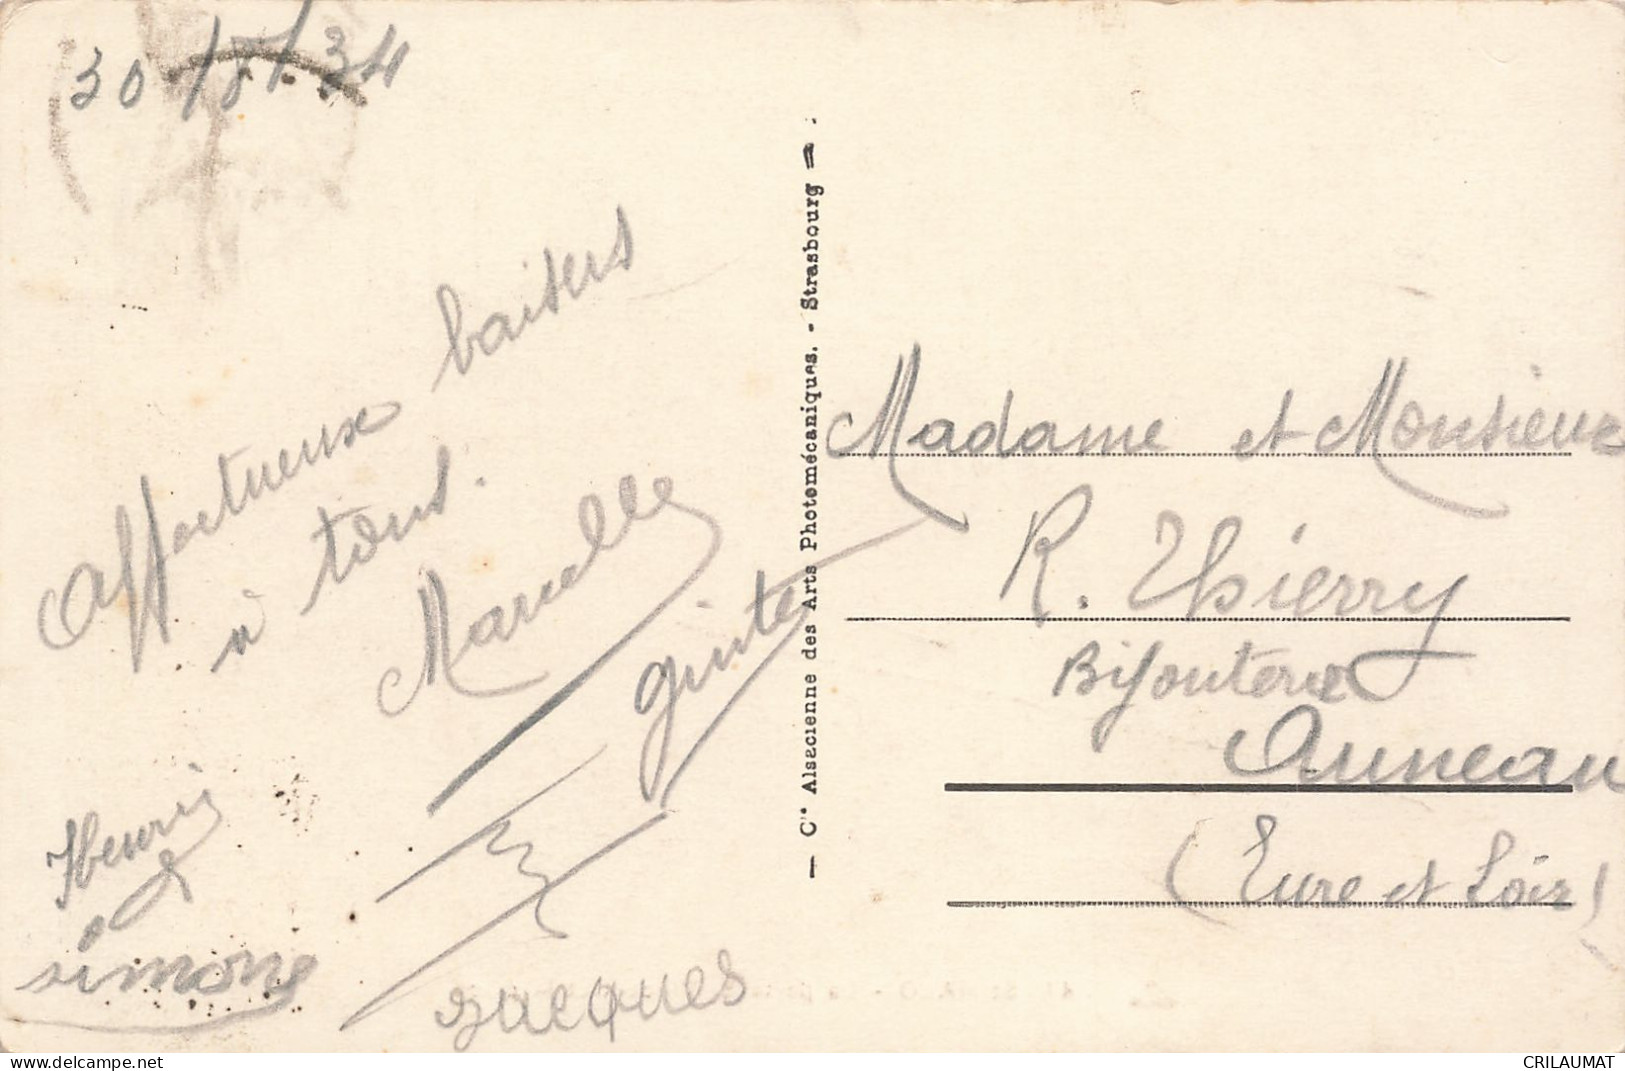 30/8/34
Affectueux baisers
à tous.
Marcelle
Ginte
Henri
&
simone
Jacques
— Cie Alsacienne des Arts Photomécaniques. - Strasbourg —
Madame et Monsieur
R. Thierry
Bijouterie
Auneau
(Eure et Loir)
CRILAUMAT